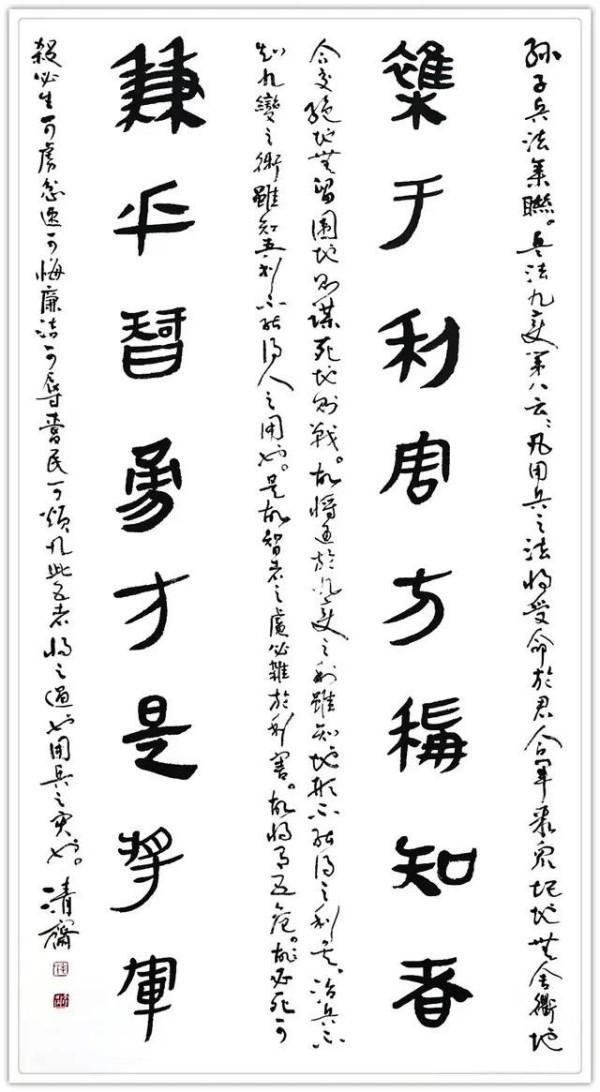 孙子兵法集聯。兵法九变第八云、凡用兵之法將受命於君合軍聚眾圮地無舍衢地
雜于利害方稱知者
合交絕地無留圍地则謀死地则戰。故將通於九变之利雖知地形不能得之利矣。治兵不
知九變之術雖知五利不能得人之用也。是故智者之慮必雜於利害。故將有五危。故必死可
兼乎智勇才是將軍
殺必生可虜忿速可侮廉洁可辱愛民可煩凡此五者將之過也用兵之灾也。清齋